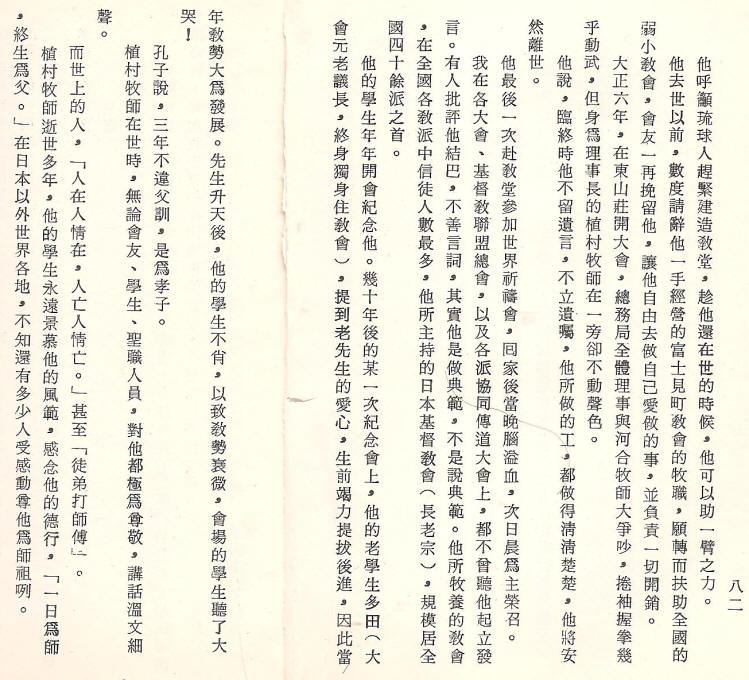 八二
他呼籲琉球人趕緊建造教堂，趁他還在世的時候，他可以助一臂之力。
他去世以前，數度請辭他一手經營的富士見町教會的牧職，願轉而扶助全國的
弱小教會，會友一再挽留他，讓他自由去做自己愛做的事，並負責一切開銷。
大正六年，在東山莊開大會，總務局全體理事與河合牧師大爭吵，捲袖握拳幾
乎動武，但身爲理事長的植村牧師在一旁卻不動聲色。
他說，臨終時他不留遺言，不立遺囑，他所做的工，都做得淸淸楚楚，他將安
然離世。
他最後一次赴教堂參加世界祈禱會，囘家後當晚腦溢血，次日晨爲主榮召。
我在各大會、基督敎聯盟總會，以及各派協同傳道大會上，都不曾聽他起立發
言。有人批評他結巴，不善言詞，其實他是做典範，不是說典範。他所牧養的敎會
，在全國各敎派中信徒人數最多，他所主持的日本基督敎會（長老宗），規模居全
國四十餘派之首。
他的學生年年開會紀念他。幾十年後的某一次紀念會上，他的老學生多田（大
會元老議長，終身獨身住敎會），提到老先生的愛心，生前竭力提拔後進，因此當
年敎勢大爲發展。先生升天後，他的學生不肖，以致敎勢衰微，會場的學生聽了大
哭！
孔子說，三年不違父訓，是爲孝子。
植村牧師在世時，無論會友、學生、聖職人員，對他都極爲尊敬，講話溫文細
聲。
而世上的人，「人在人情在，人亡人情亡。」甚至「徒弟打師傅」。
植村牧師逝世多年，他的學生永遠景慕他的風範，感念他的德行，「一日爲師
，終生爲父。」在日本以外世界各地，不知還有多少人受感動尊他爲師祖咧。